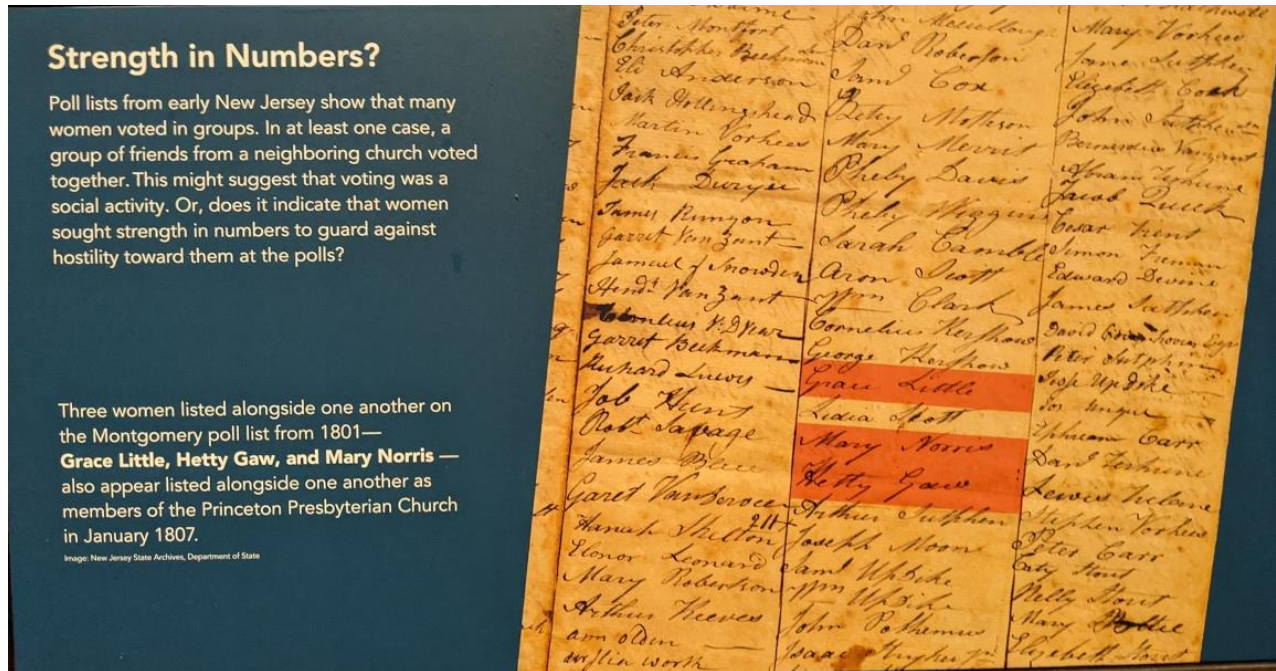 Strength in Numbers?
Poll lists from early New Jersey show that many
women voted in groups. In at least one case, a
group of friends from a neighboring church voted
together. This might suggest that voting was a
social activity. Or, does it indicate that women
sought strength in numbers to guard against
hostility toward them at the polls?
Three women listed alongside one another on
the Montgomery poll list from 1801—
Grace Little, Hetty Gaw, and Mary Norris —
also appear listed alongside one another as
members of the Princeton Presbyterian Church
in January 1807.
Image: New Jersey State Archives, Department of State
Peter Montfort
Christopher Beekman
Eli Anderson
Jack Hollingshead
Martin Vorhees
Francis Graham
Jack Dwyer
James Runyon
Garret Van Zant
Samuel Snowden
Hend. Van Zant
Garret Beekman
Richard
Job Hunt
Robt Savage
James
Garet
Hanah Skelton
Elonor Leonard
Mary Robertson
Arthur Reeves
ann olden
worth
John
Danl Roberson
Saml Cox
Betey Mottison
Mary Merrit
Pheby Davis
Pheby Wiggins
Sarah Camble
Aron Scott
Wm Clark
Cornelius Kershow
George Kershow
Grace Little
Lidia Scott
Mary Norris
Hetty Gaw
Arthur Sutphen
211
Joseph Moore
Saml UpDike
Wm UpDike
John Pothemus
Isaac
Mary Vorhees
James Sutphen
Elizebeth Cook
John
Abram Terhune
Jacob Quick
Cesar Trent
Simon Freman
Edward Devine
James Sutphen
David
Peter Sutphen
UpDike
Ephraim Carr
Danl Terhune
Lewis
Stephen Vorhees
Peter Carr
Caty Stout
Nelly Stout
Mary
Elizebeth Stout